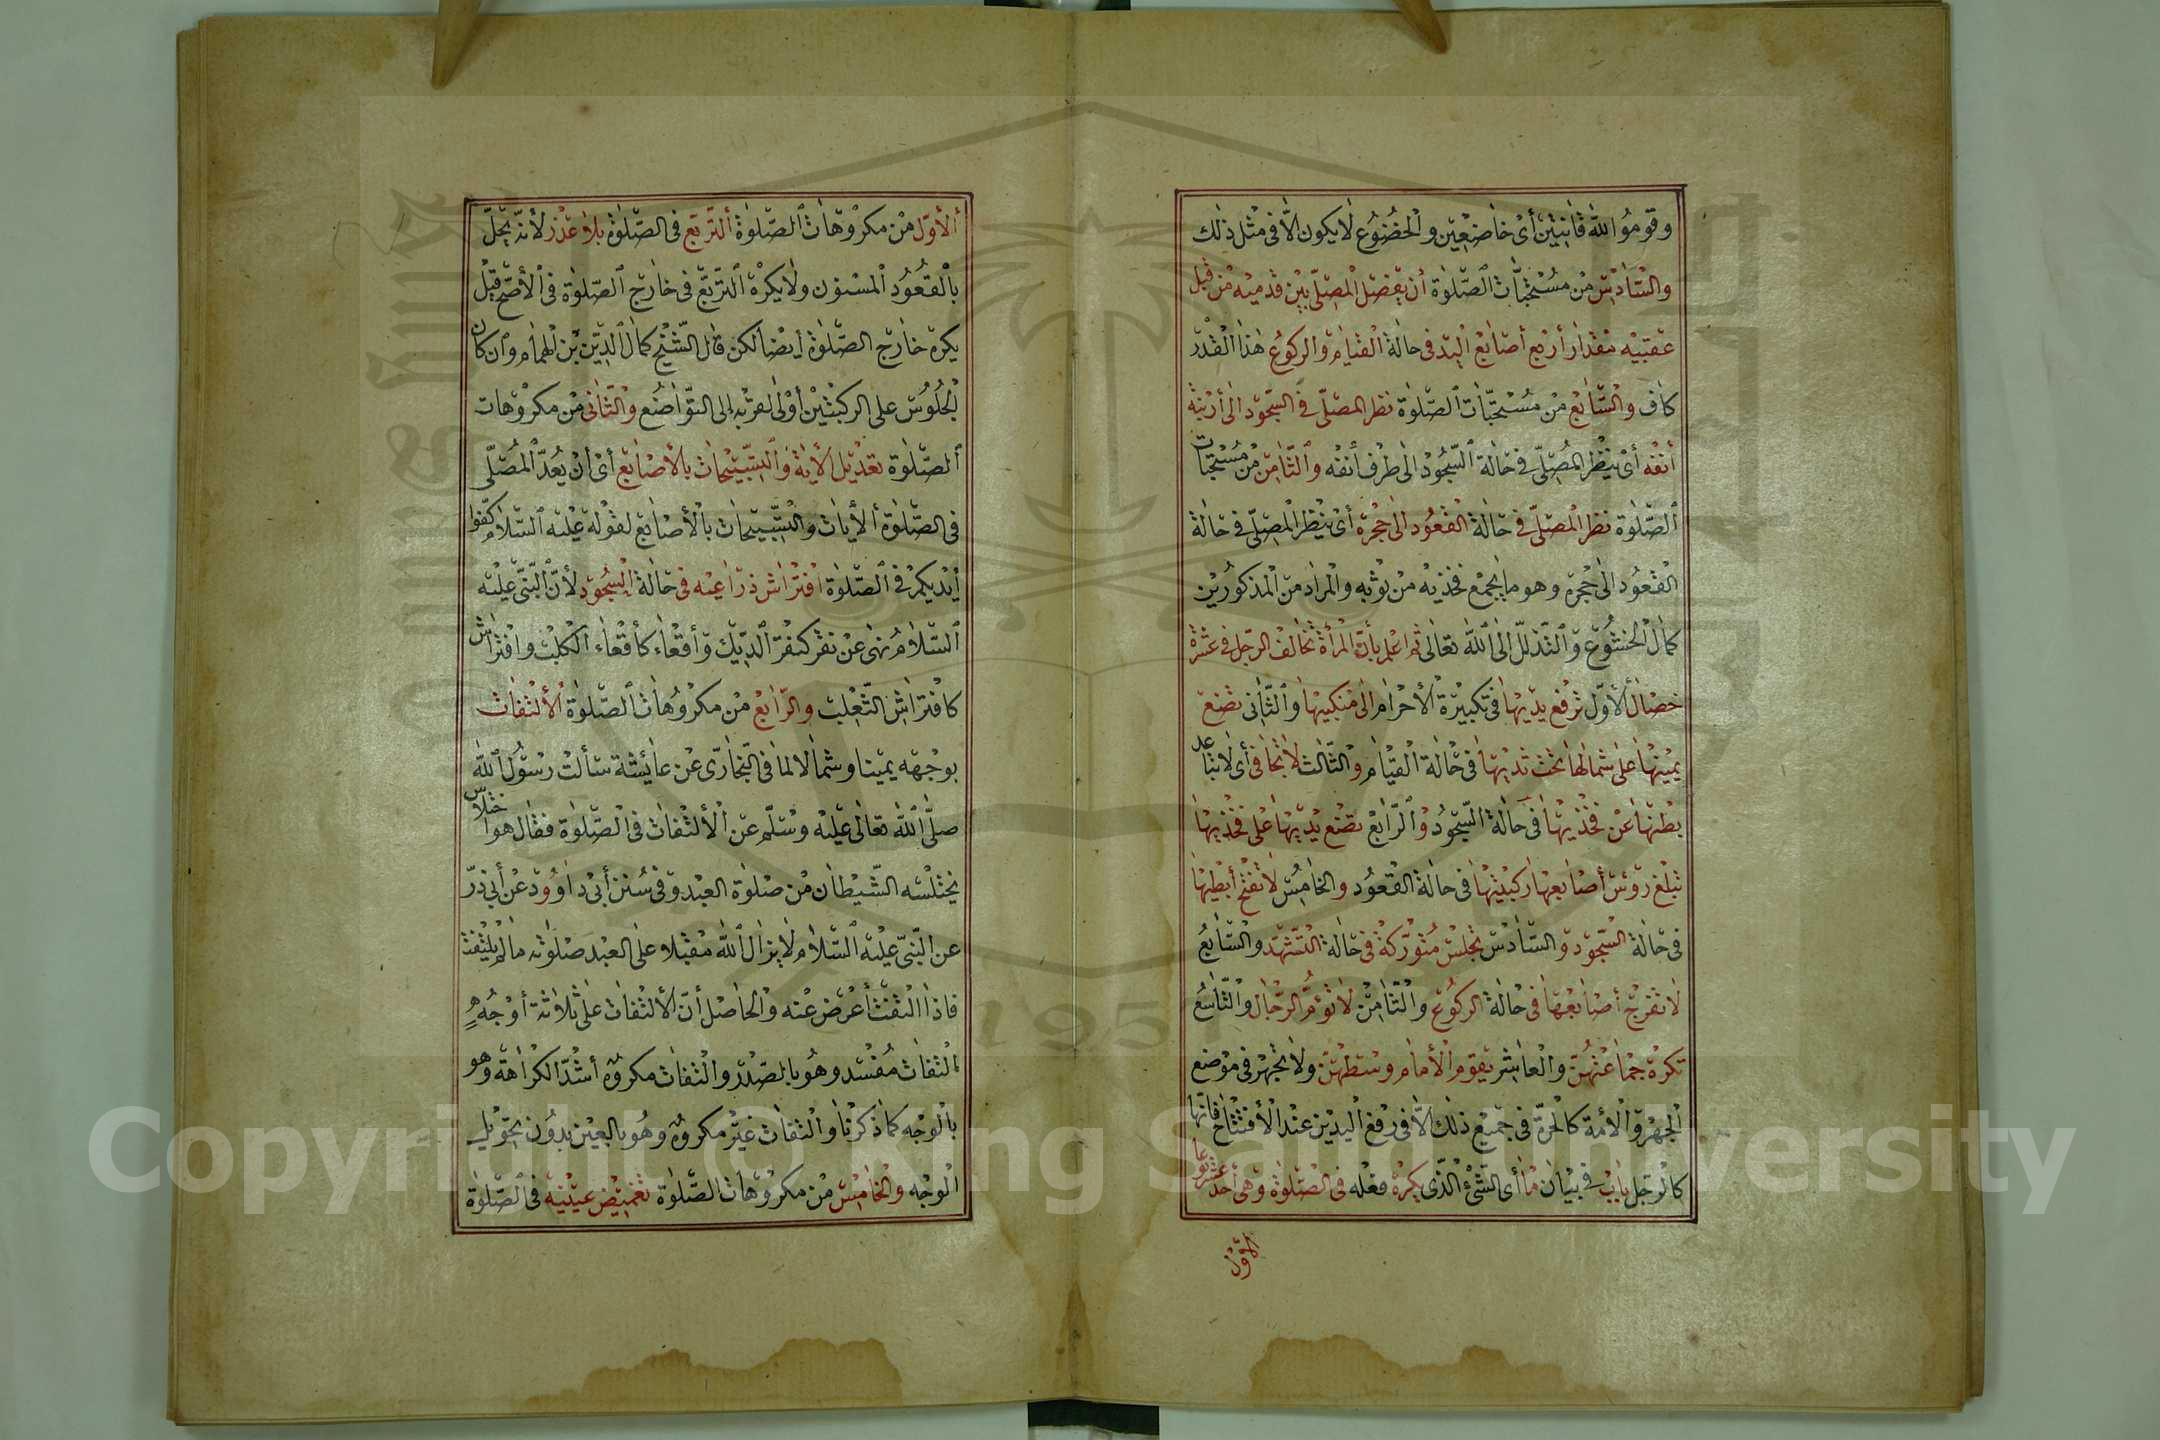 وقوموا لله قانتين أي خاضعين والخضوع لا يكون إلا في مثل ذلك
والسادس من مستحبات الصلوة أن يفصل المصلي بين قدميه من قبل
عقبيه مقدار أربع أصابع اليد في حالة القيام والركوع هذا القدر
كاف والسابع من مستحبات الصلوة نظر المصلي في السجود إلى أرنبة
أنفه أي ينظر المصلي في حالة السجود إلى طرف أنفه والثامن من مستحبات
الصلوة نظر المصلي في حالة القعود إلى حجره أي ينظر المصلي في حالة
القعود إلى حجره وهو ما يجمع فخذيه من ثوبه والمراد من المذكورين
كمال الخشوع والتذلل إلى الله تعالى ثم اعلم بأن المرأة تخالف الرجل في عشرة
خصال الأول ترفع يديها في تكبيرة الأحرام إلى منكبيها والثاني تضع
يمينها على شمالها تحت ثديها في حالة القيام والثالث لا تجافي أي لا تباعد
بطنها عن فخذيها في حالة السجود والرابع تضع يديها على فخذيها
تبلغ رؤس أصابعها ركبتيها في حالة القعود والخامس لا تفتح أبطيها
في حالة السجود والسادس تجلس متوركة في حالة التشهد والسابع
لا تفرج أصابعها في حالة الركوع والثامن لا تؤم الرجال والتاسع
تكره جماعتهن والعاشر يقوم الأمام وسطهن ولا تجهر في موضع
الجهر والأمة كالحرة في جميع ذلك إلا في رفع اليدين عند الأفتتاح فانها
كالرجل باب في بيان ما أي الشيء الذي يكره فعله في الصلوة وهي أحد عشر نوعا
الأول
الأول من مكروهات الصلوة التربع في الصلوة بلا عذر لأنه يخل
بالقعود المسنون ولا يكره التربع في خارج الصلوة في الأصح قيل
يكره خارج الصلوة أيضا لكن قال الشيخ كمال الدين بن الهمام وان كان
الجلوس على الركبتين أولى لقربه إلى التواضع والثاني من مكروهات
الصلوة تعديل الأية والتسبيحات بالأصابع أي أن يعد المصلي
في الصلوة الأيات والتسبيحات بالأصابع لقوله عليه السلام كفوا
أيديكم في الصلوة افتراش ذراعيه في حالة السجود لأن النبي عليه
السلام نهى عن نقر كنقر الديك وأقعاء كأقعاء الكلب وافتراش
كافتراش الثعلب والرابع من مكروهات الصلوة الألتفات
بوجهه يمينا وشمالا لما في البخاري عن عائشة سألت رسول الله
صلى الله تعالى عليه وسلم عن الألتفات في الصلوة فقال هو اختلاس
يختلسه الشيطان من صلوة العبد وفي سنن أبي داوود عن أبي ذر
عن النبي عليه السلام لا يزال الله مقبلا على العبد صلوته ما لم يلتفت
فاذا التفت أعرض عنه والحاصل أن الألتفات على ثلاثة أوجه
التفات مفسد وهو بالصدر والتفات مكروه أشد الكراهة وهو
بالوجه كما ذكرنا والتفات غير مكروه وهو بالعين بدون تحويل
الوجه والخامس من مكروهات الصلوة تغميض عينيه في الصلوة
Copyright © King Saud University
1957